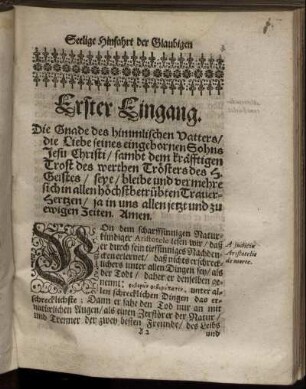 Seelige Hinfahrt der Glaubigen
Erster Eingang.
Die Gnade des himmlischen Vatters /
die Liebe seines eingebornen Sohns
Jesu Christi / sambt dem kräfftigen
Trost des werthen Trösters des H.
Geistes / seye / bleibe und vermehre
sich in allen höchstbetrübten Trauer-
Hertzen / ja in uns allen jetzt und zu
ewigen Zeiten. Amen.
VOn dem scharffsinnigen Natur-
kündiger Aristotele lesen wir / daß
er durch sein tieffsinniges Nachden-
cken erlernet / daß nichts erschreck-
lichers unter allen Dingen sey / als
der Todt / daher er denselben ge-
nennt: unter al-
len schrecklichen Dingen das er-
schrecklichste: Dann er sahe den Tod nur an mit
natürlichen Augen / als einen Zerstörer der Natur /
und Trenner der zwey besten Freunde / des Leibs
und
Aristotelis
de morte.